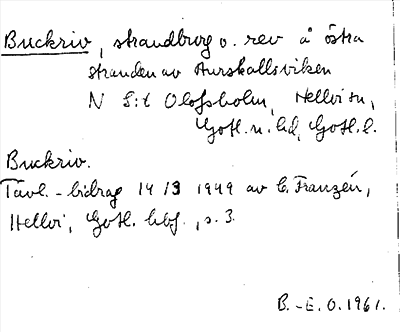 Buckriv, strandbryg o. rev å östra
stranden av Aurskallsviken
N S:t Olofsholm, Hellvi sn,
Gotl. n. hd, Gotl. l.
Buckriv.
Tävl.-bidrag 14/3 1949 av C. Franzén,
Hellvi, Gotl. hbf., s. 3.
B.-E. O. 1961.